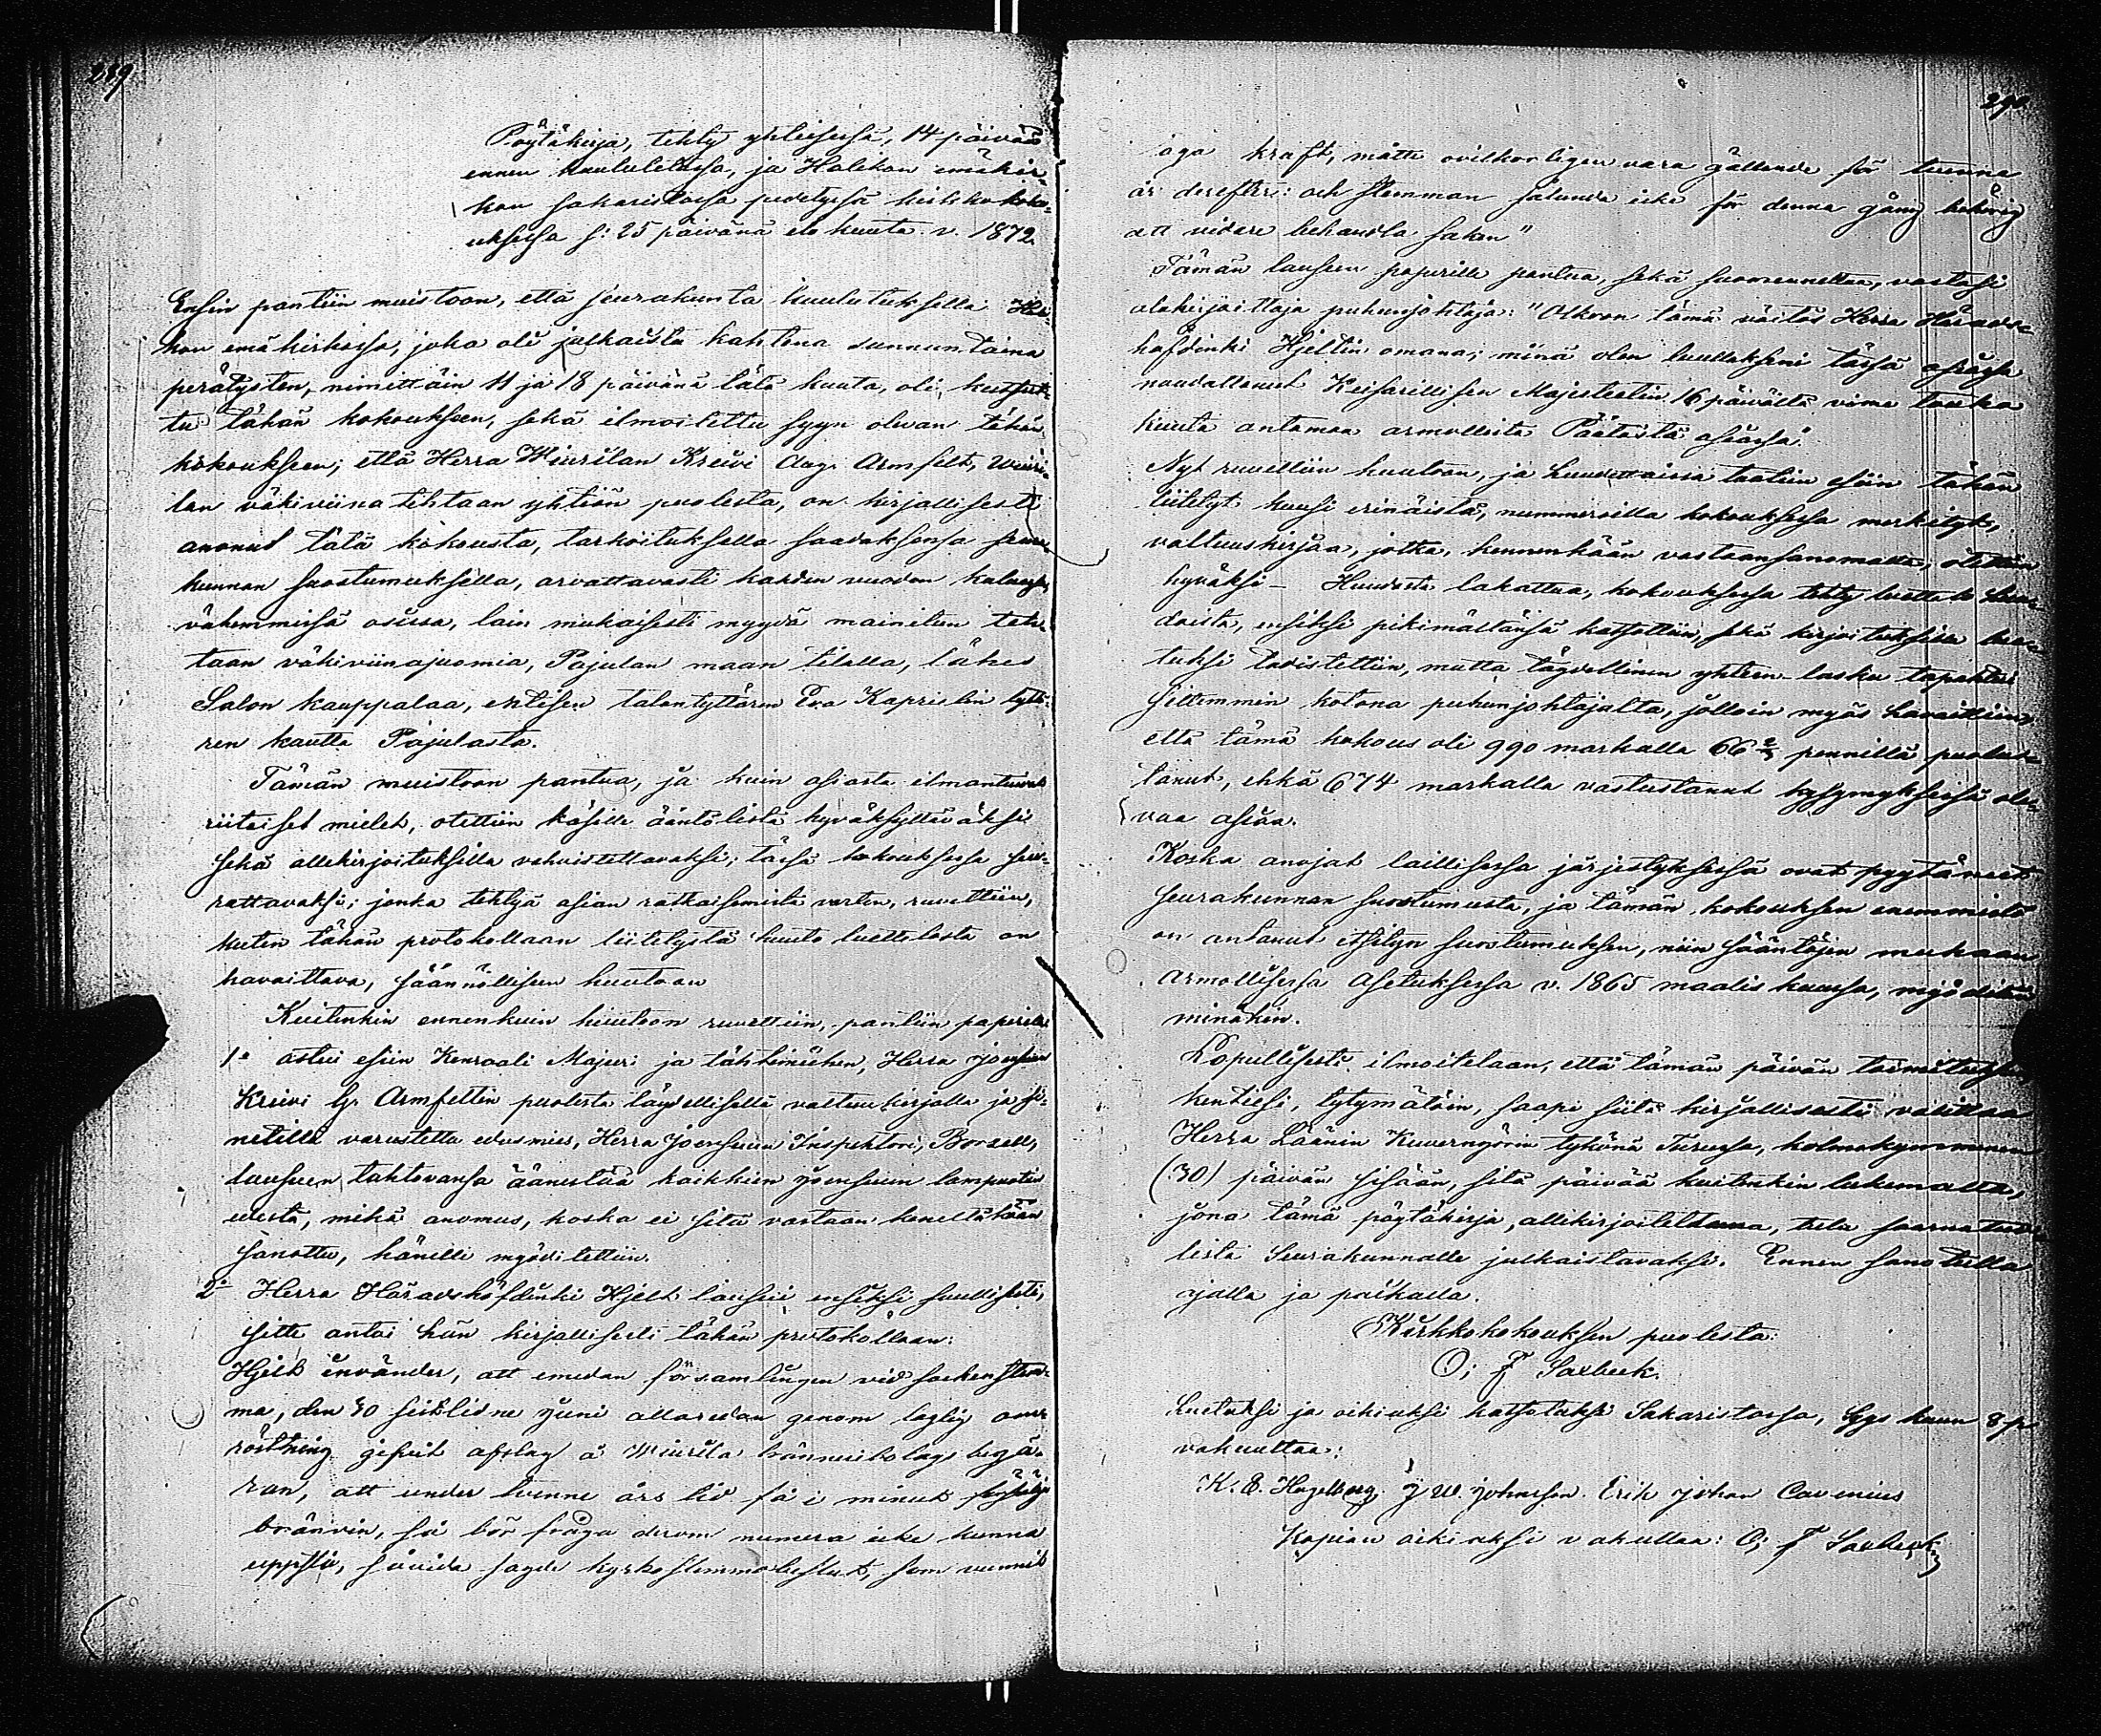 289
Pöytäkirja, tehty yhteisessä, 14 päivää
ennen kuulutetussa, ja Halikon emäkir-
kon sakaristossa pidetyssä kirkkokoko-
uksessa s: 25 päivänä elo kuuta v. 1872.
Ensin pantiin muistoon, että seurakunta kuulutuksella Hali-
kon emäkirkossa, joka oli julkaistu kahtena sunnuntaina
perätysten, nimettäin 11 ja 18 päivänä tätä kuuta, oli kutsut-
tu tähän kokoukseen, sekä ilmoitettu syyn olevan tähän
kokoukseen; että Herra Wiurilan Kreivi Aug. Armfelt, Wiuri-
lan väkiviina tehtaan yhtiön puolesta, on kirjallisesti
anonut tätä kokousta, tarkoituksella saadaksensa seura-
kunnan suostumuksella, arvattavasti kahden vuoden kuluessa,
vähemmissä osissa, lain mukaisesti myydä mainitun teh-
taan väkiviinajuomia, Pajulan maan tilalla, lähes
Salon kauppalaa, entisen talontyttären Eva Kapristin tyttä-
ren kautta Pajulasta.
Tämän muistoon pantua, ja kuin asiasta ilmantuivat
riitaiset mielet, otettiin käsille ääntölista hyväksyttäväksi
sekä allekirjoituksilla vahvistettavaksi; tässä kokouksessa seu-
rattavaksi; jonka tehtyä asian ratkaisemista varten, ruvettiin,
kuten tähän protokollaan liitetystä huuto luettelosta on
havaittava, säännölliseen huutoon
Kuitenkin ennenkuin huutoon ruvettiin, pantiin paperille
1o astui esiin Kenraali Majuri ja tähtimiehen, Herra Joensuun
Kreivi G. Armfeltin puolesta täydellisellä valtuuskirjalla ja si-
netillä varustettu edusmies, Herra Joensuun Inspehtori, Borsell,
lausuen tahtovansa äänestää kaikkien Joensuun lampuotien
edestä, mikä anomus, koska ei sitä vastaan keneltäkään
sanottu, hänelle myöditettiin.
2o Herra Häradshöfdinki Hjelt lausui ensiksi suullisesti,
sitte antoi hän kirjallisesti tähän protokollaan:
Hjelt invänder, att emedan församlingen vid sockenstäm-
ma, den 30 sistlidne Juni allaredan genom laglig om-
röstning gifvit afslag å Wiurila bränneribolags begä-
ran, att under tvenne års tid få i minut försälja
brännvin, så bör fråga derom numera icke kunna
uppstå, såvida sagde kyrkostämmobeslut, som vunnit
290
äga kraft, måtte ovilkorligen vara gällande för tvenne
år derefter: och stämman sålunda icke för denna gång behörig
att vidare behandla saken"
Tämän lauseen paperille pantua, sekä suomennettua, vastasi
alakirjoittaja puhunjohtaja: "Olkoon tämä väitös Herra Härads-
höfdinki Hjeltin omana; minä olen luullakseni tässä asiassa
noudattanut Keisarillisen Majesteetin 16 päivältä viime touko
kuuta antamaa armollista Päätöstä asiassa".
Nyt ruvettiin huutoon, ja huudettaissa tuotiin esiin tähän
liitetyt kuusi erinäistä, nummeroilla kokouksessa merkityt,
valtuuskirjaa, jotka, kennenkään vastaansanomatta, otettiin
hyväksi - Huudosta lakattua, kokouksessa tehty luettelo huu-
doista, ensiksi pikimältänsä katsottiin, sekä kirjoituksilla lue-
tuksi todistettiin, mutta täydellinen yhteen-lasku tapahtui
sittemmin kotona puhunjohtajalta, jolloin myös havaittiin,
että tämä kokous oli 990 markalla 66 2/3 pennillä puolus-
tanut, ehkä 674 markalla vastustanut kysymyksessä ole-
vaa asiaa.
Koska anojat laillisessa järjestyksessä ovat pyytäneet
seurakunnan suostumusta, ja tämän kokouksen enemmistö
on antanut itsetyn suostumuksen, niin sääntöjen mukaan
Armollisessa Asetuksessa v. 1865 maalis kuussa, myödän
minäkin.
Lopullisesti ilmoitetaan, että tämän päivän toimitukseen
kentiesi, tytymätöin, saapi siitä kirjallisesti valittaa
Herra Läänin Kuvernyörin tykönä Turussa, kolmekymmenen
(30) päivän sisään, sitä päivää kuitenkin lukematta,
jona tämä pöytäkirja, allekirjoitettuna, tulee saarna tuo-
lista Seurakunnalle julkaistavaksi. Ennen sanotulla
ajalla ja paikalla.
Kirkkokokouksen puolesta:
O; F Saxbeck.
Luetuksi ja oikiaksi katsotuksi Sakaristossa, Syys kuun 8 p.
vakuuttaa:
K. E. Hagelberg. J W. Johnsson. Erik Johan Cavenius
Kopian oikiaksi vakuttaa: O; F Saxbeck